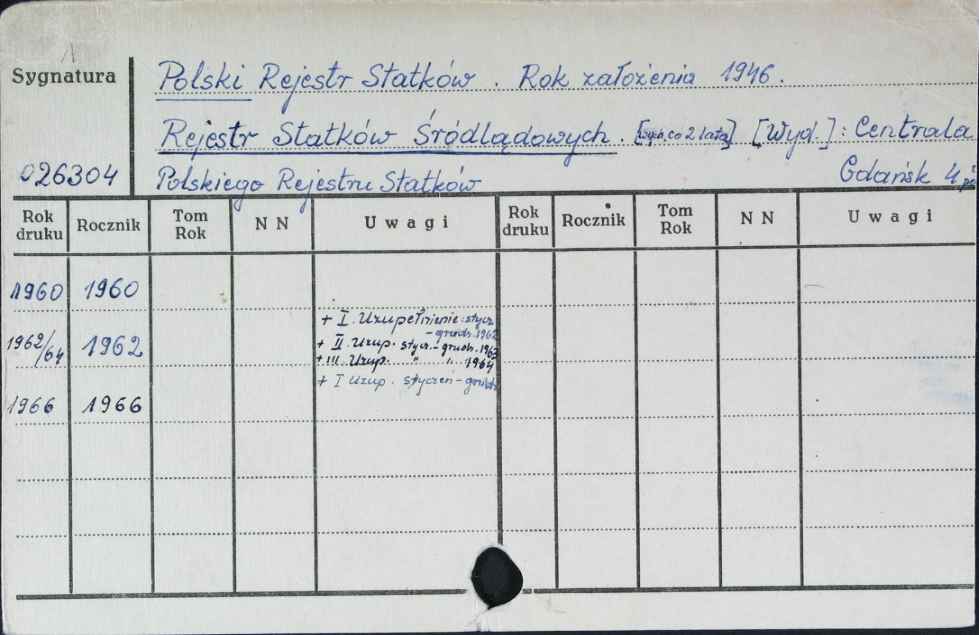 Sygnatura
Polski Rejestr Statków. Rok założenia 1946.
Rejestr Statków Śródlądowych. [wych. co 2 lata] [Wyd.]: Centrala
026304 Polskiego Rejestru Statków Gdańsk 4°
Rok druku Rocznik Tom Rok NN Uwagi Rok druku Rocznik Tom Rok NN Uwagi
1960 1960
+ I. Uzupełnienie: stycz.
- grudz. 1962
1962/64 1962 + II. Uzup. stycz. - grudz. 1963
+ III. Uzup. " " 1964
+ I Uzup. styczeń - grudz.
1966 1966